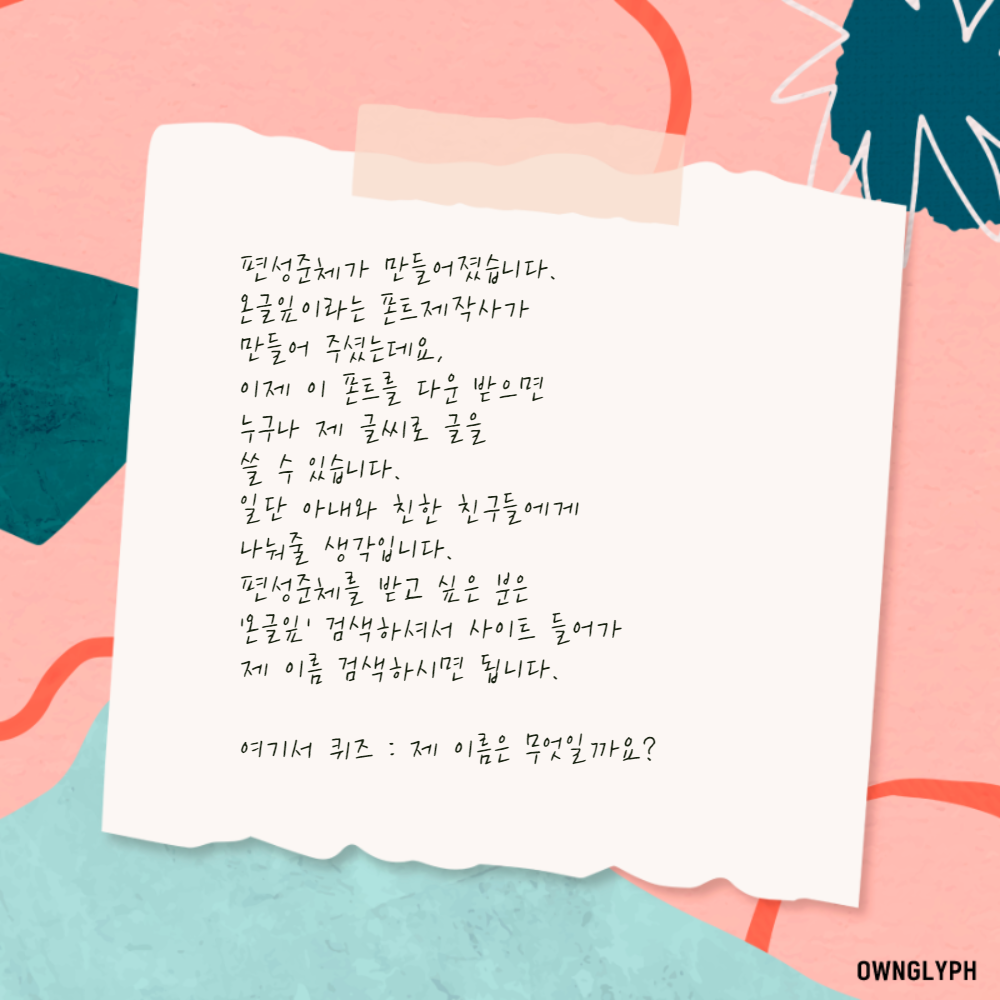 편성준체가 만들어졌습니다.
온글잎이라는 폰트제작사가
만들어 주셨는데요,
이제 이 폰트를 다운 받으면
누구나 제 글씨로 글을
쓸 수 있습니다.
일단 아내와 친한 친구들에게
나눠줄 생각입니다.
편성준체를 받고 싶은 분은
'온글잎' 검색하셔서 사이트 들어가
제 이름 검색하시면 됩니다.
여기서 퀴즈 : 제 이름은 무엇일까요?
OWNGLYPH